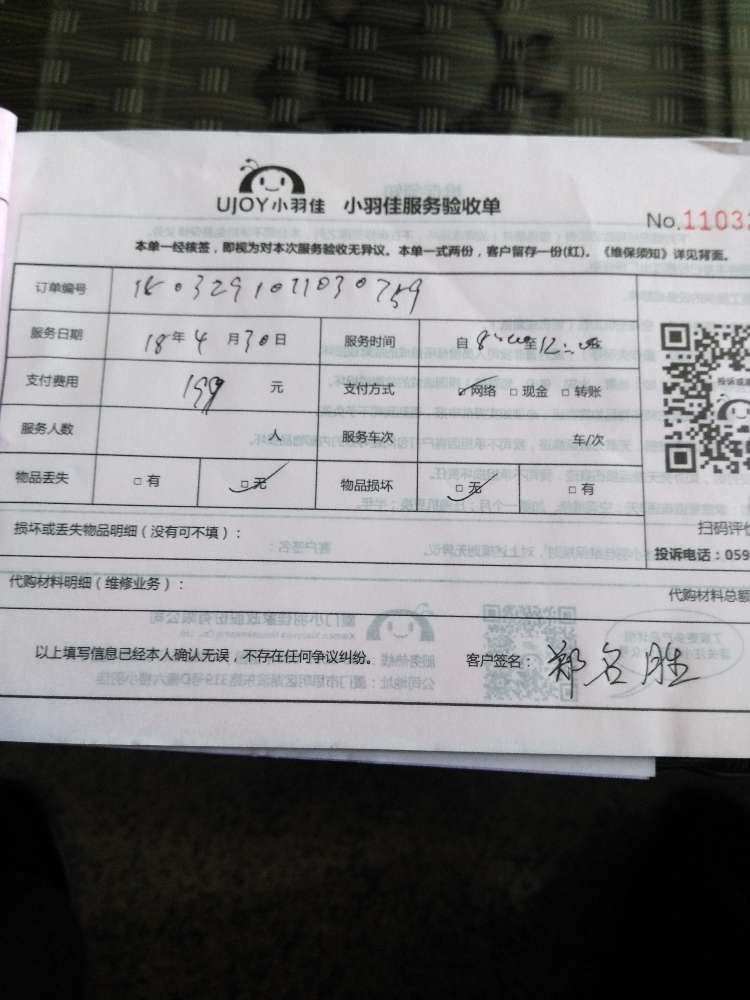 UJOY小羽佳 小羽佳服务验收单
No.11032
本单一经核签，即视为对本次服务验收无异议。本单一式两份，客户留存一份(红)。《维保须知》详见背面。
订单编号
服务日期 18年4月30日 服务时间 自8:00至12:00
支付费用 199元 支付方式 ☑网络 □现金 □转账
服务人数 人 服务车次 车/次
物品丢失 □有 ☑无 物品损坏 ☑无 □有
损坏或丢失物品明细（没有可不填）：
扫码评价
投诉或
投诉电话：059
代购材料明细（维修业务）：
代购材料总额
以上填写信息已经本人确认无误，不存在任何争议纠纷。 客户签名：郑名胜